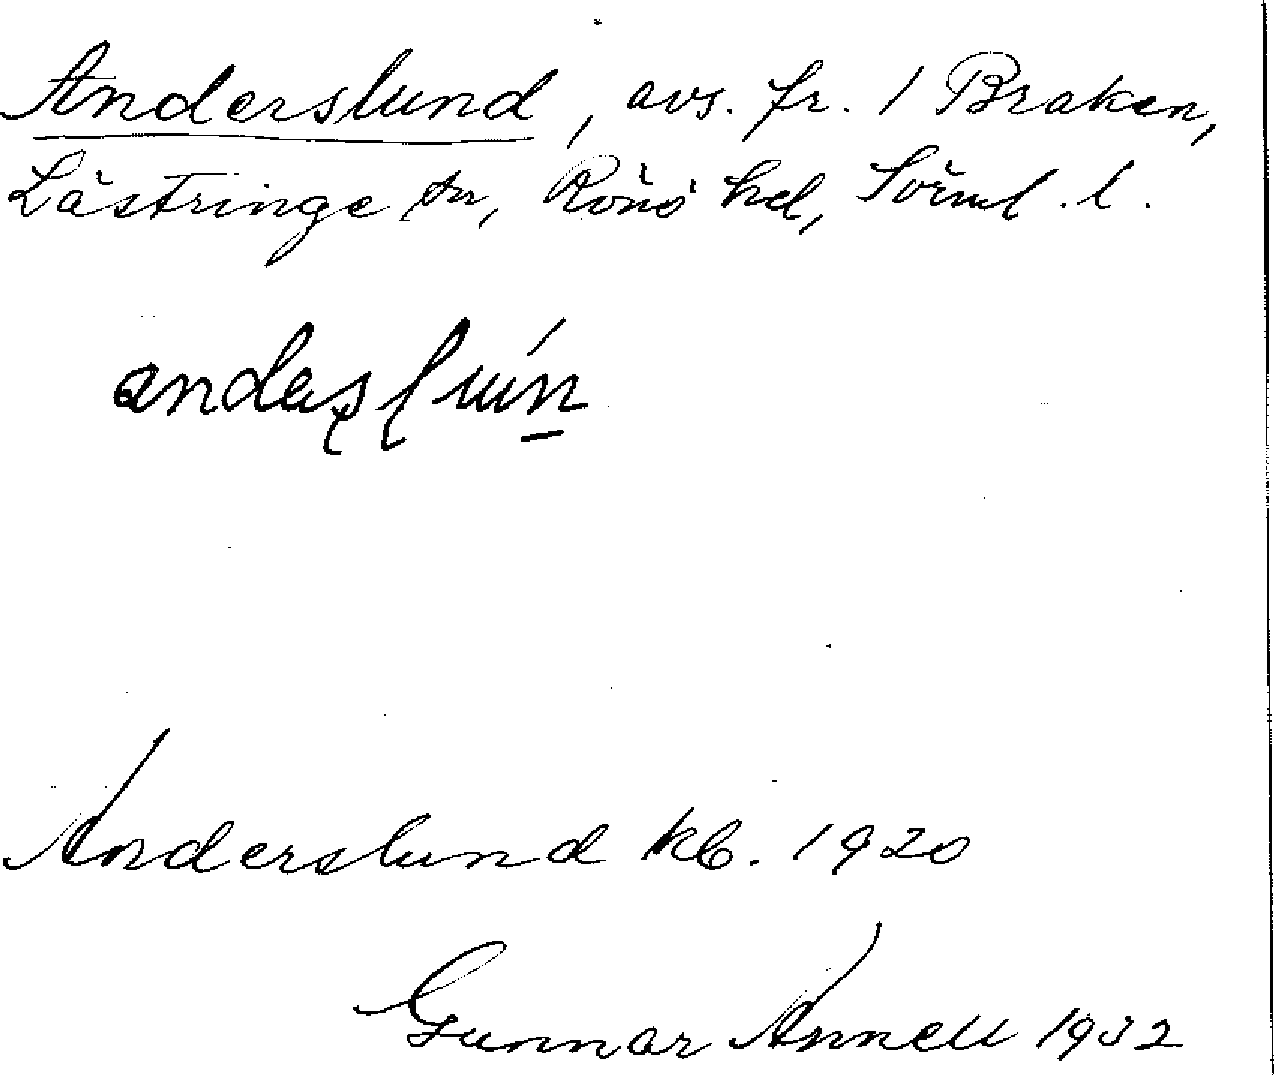 Anderslund, avs. fr. 1 Braken,
Lästringe sn, Rönö hd, Sörml. l.
Anderslund kb. 1920
Gunnar Annell 1932